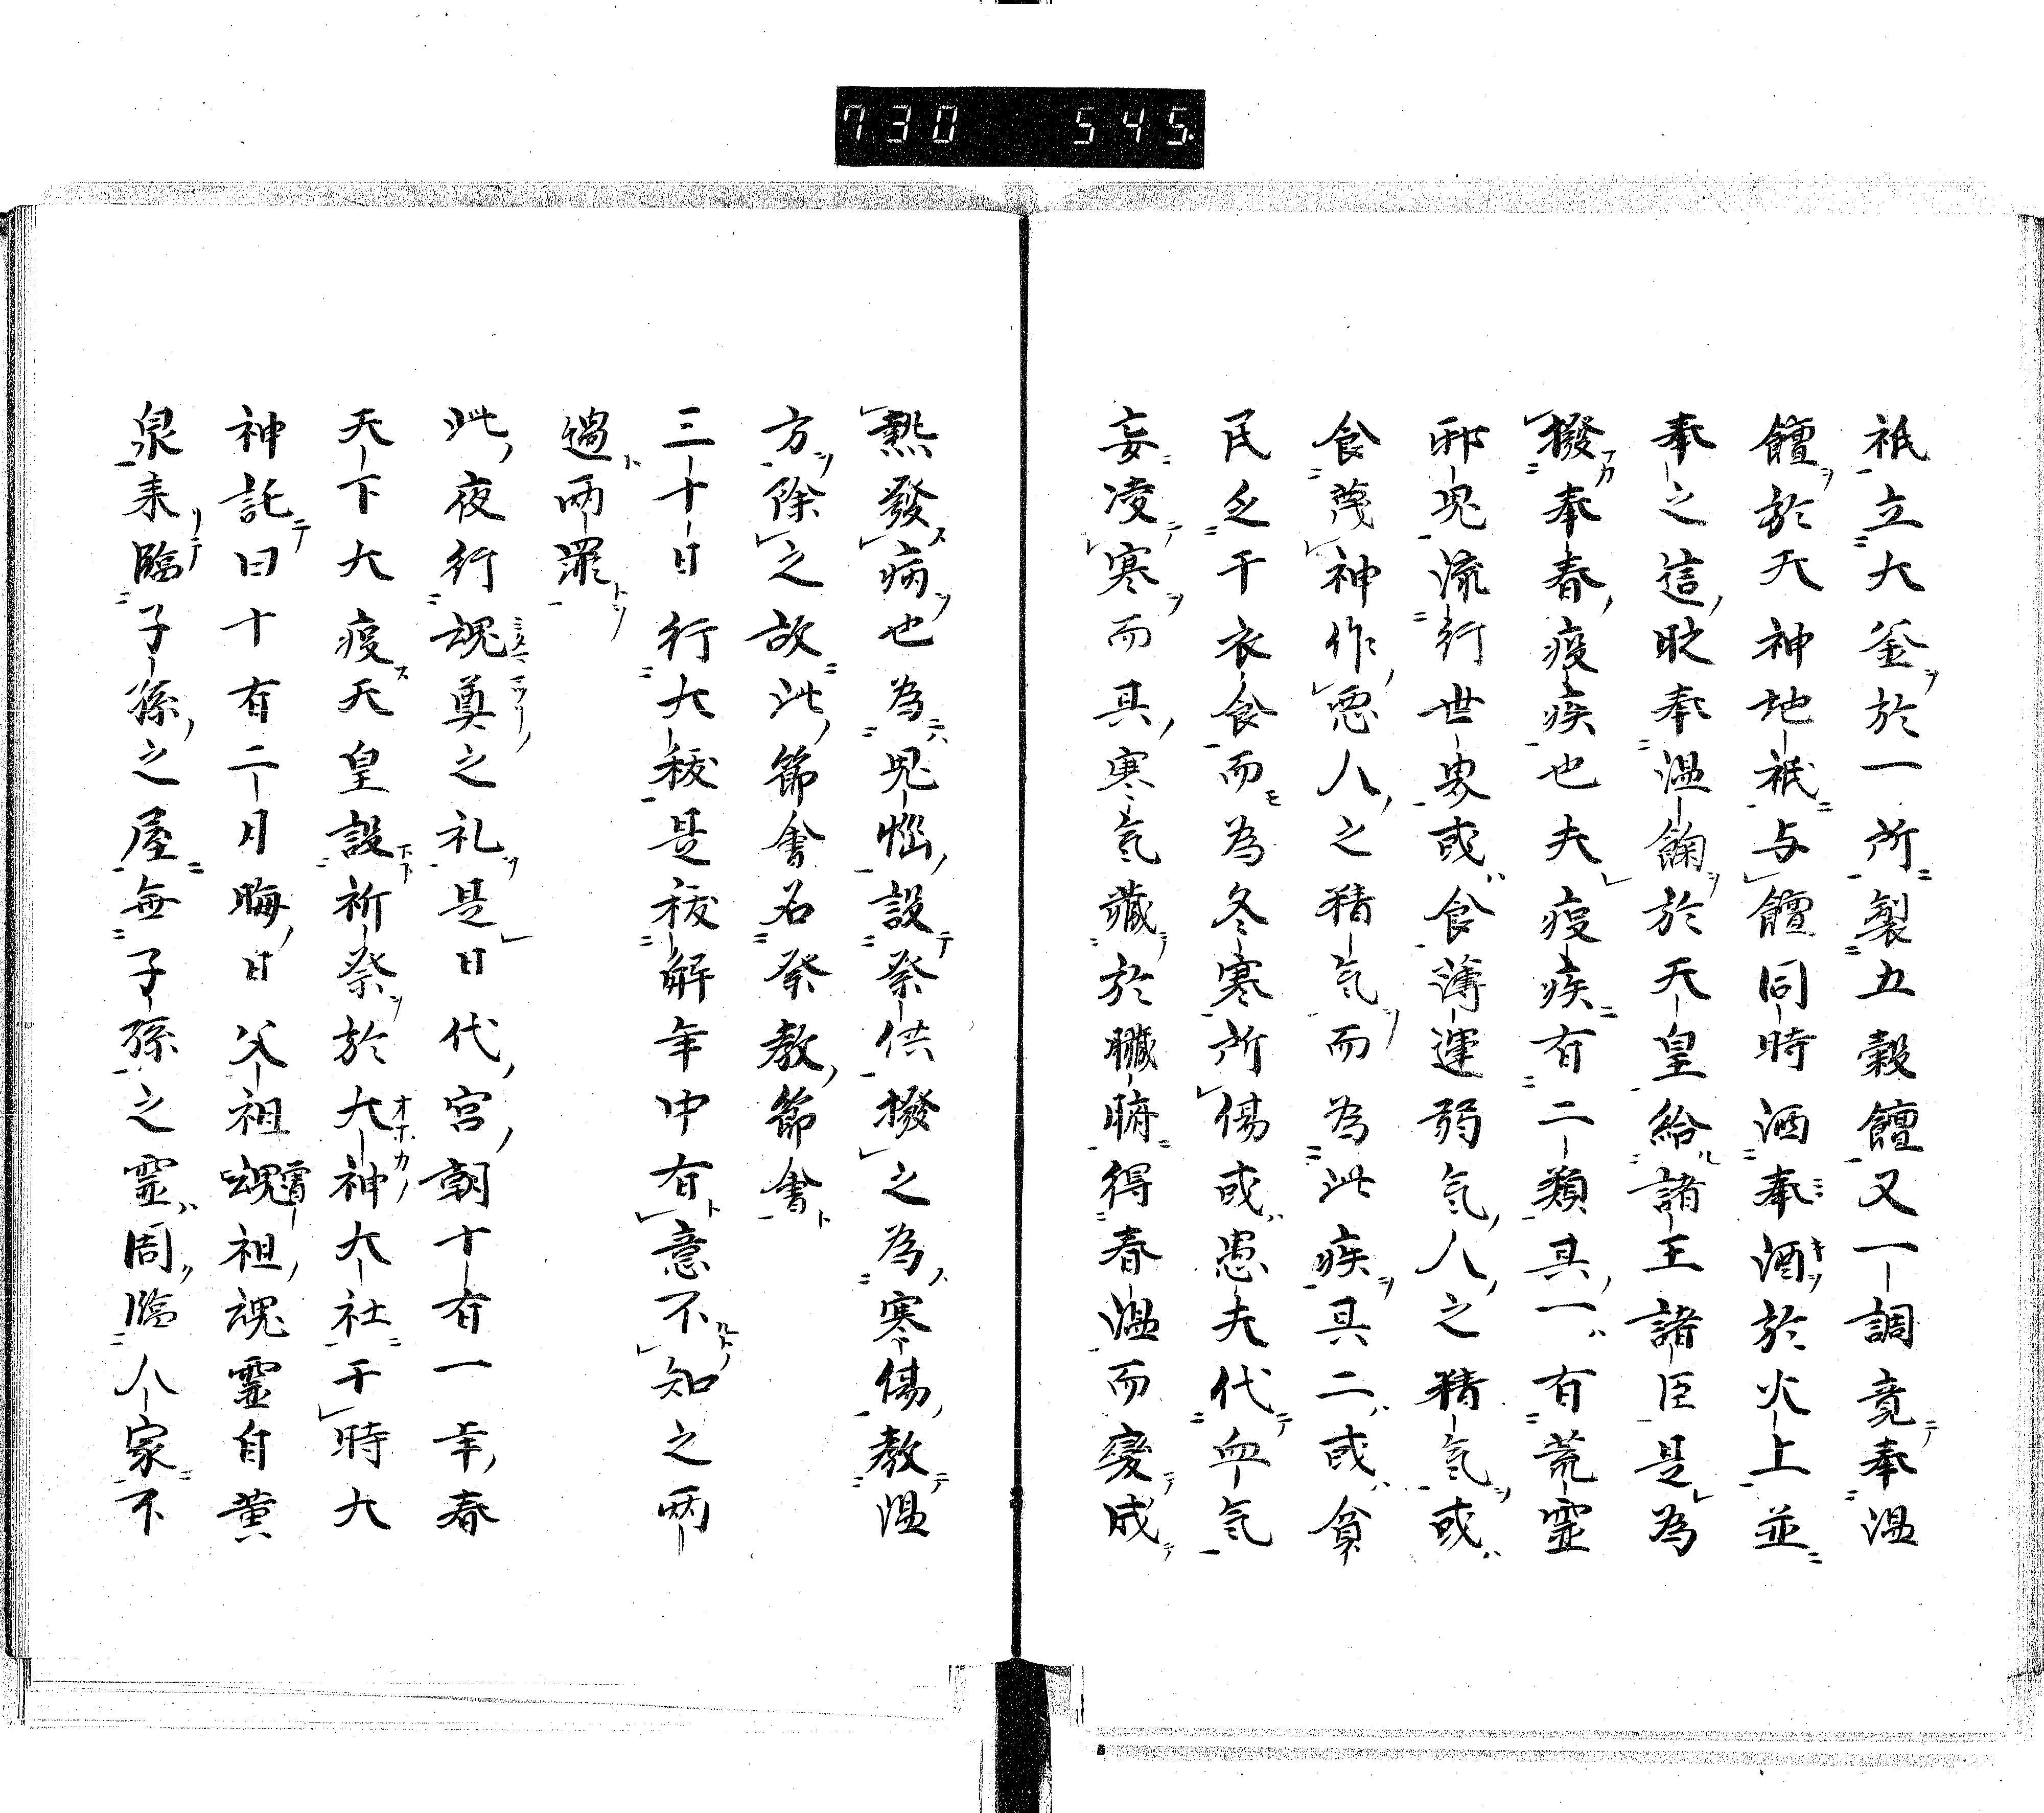 730 545.
祇立大釜於一所製五穀饘又一調竟奉温
饘於天神地祇与饘同時酒奉酒於火上並
奉之這眨奉温餉於天皇給諸王諸臣是為
撥奉春疫疾也夫疫疾有二類其一有荒霊
邪鬼流行世界或食薄運弱気人之精気或
食蔑神作悪人之精気而為此疾其二或貧
民乏干衣食而為冬寒所傷或愚夫代血気
妄凌寒而具寒気蔵於臓腑得春温而変成
熱發病也為鬼悩設祭供撥之為寒傷教温
方除之故此節會名祭教節會
三十日行大秡是秡解年中有意不知之両
過両罪
此夜行魂奠之礼是日代宮朝十有一年春
天下大疫天皇設祈祭於大神大社干時大
神託曰十有二月晦日父祖魂霊祖魂霊自黄
泉来臨子孫之屋無子孫之霊周臨人家不